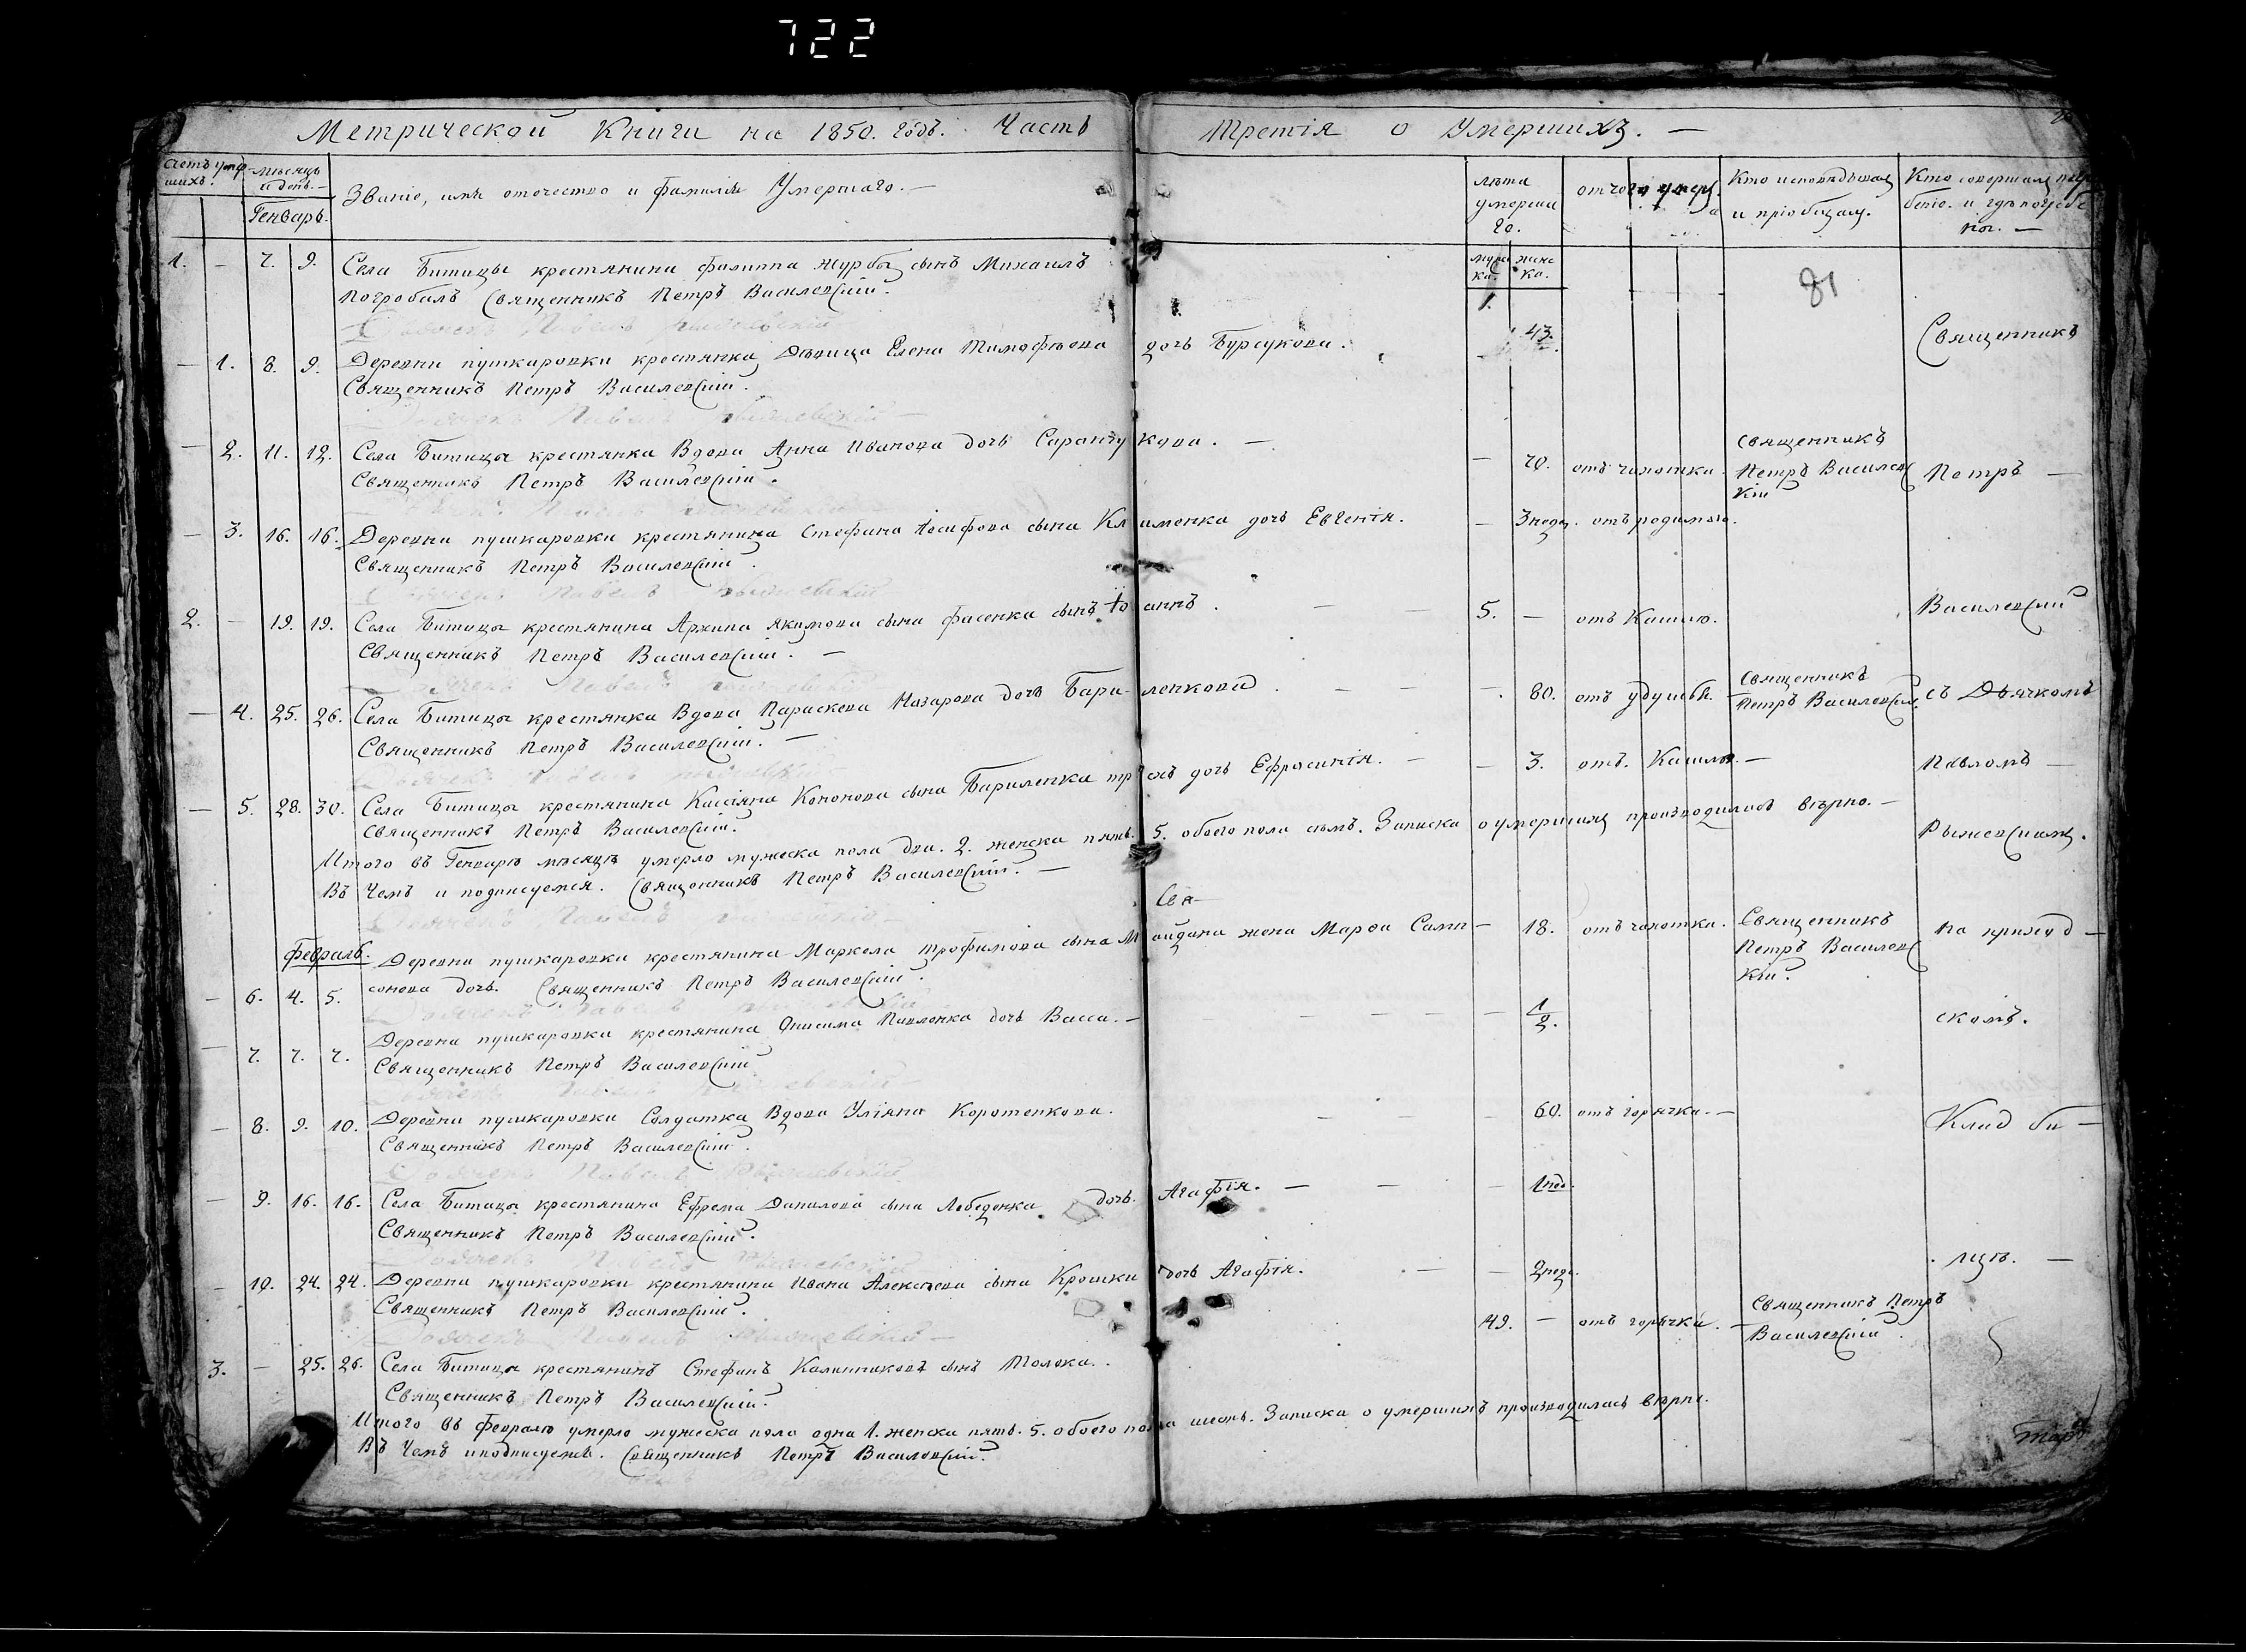 722
Метрической Книги на 1850. Годъ. Часть Третія о Умершихъ. —
мѣсяць и день. —
Генварь.
Званіе, имя отечество и фамилія Умершаго. —
лѣта умерша го.
муж ка. женс ка.
отчего умеръ.
Кто исповѣдывалъ и пріобщалъ.
81
1. — 7. 9. Села Битицы крестянина Филиппа Журбы сынъ Михаилъ 1.
Погребалъ Священникъ Петръ Василевскій.
— 1. 8. 9. Деревни пушкаровки крестянка Дѣвица Елена Тимофѣева дочь Бурсукова. 43. Священникъ
Священникъ Петръ Василевскій.
— 2. 11. 12. Села Битицы крестянка Вдова Анна Иванова дочь Саранчукова. — — 70. отъ чахотки. Священникъ Петръ Василевскій Петръ —
Священникъ Петръ Василевскій.
— 3. 16. 16. Деревни пушкаровки крестянина Стефана Іосифова сына Клименка дочь Евгенія. — 3 недѣ. отъ родимаго.
Священникъ Петръ Василевскій.
2. — 19. 19. Села Битицы крестянина Архипа Якимова сына Фасенка сынъ Іоаннъ. — — 5. — отъ Кашлю. Василевскій
Священникъ Петръ Василевскій. —
— 4. 25. 26. Села Битицы крестянка Вдова Параскева Назарова дочь Бари-ленкова. — — — 80. отъ удушья. Священникъ Петръ Василевскій. съ Дьячкомъ
Священникъ Петръ Василевскій. —
— 5. 28. 30. Села Битицы крестянина Кассіяна Кононова сына Бариленка дочь Ефросинія. — — 3. отъ. Кашлю. — Павломъ —
Священникъ Петръ Василевскій.
Итого въ Генварѣ мѣсяцѣ умерло мужеска пола два. 2. женска пять. 5. обоего пола семь. Записка о умершихъ производилась вѣрно. —
Въ Чемъ и подписуемся. Священникъ Петръ Василевскій. —
Февраль.
— 6. 4. 5. Деревни пушкаровки крестянина Маркела Трофимова сына Майдана жена Марфа Самп- — 18. отъ чахотки. Священникъ Петръ Василевскій. На приход —
сонова дочь. Священникъ Петръ Василевскій.
— 7. 7. 7. Деревни пушкаровки крестянина Онисима Павленка дочь Васса. — — 1/2. скомъ.
Священникъ Петръ Василевскій
— 8. 9. 10. Деревни пушкаровки Солдатка Вдова Уліяна Коротенкова. — — — 60. отъ горячки. — Клад би —
Священникъ Петръ Василевскій.
— 9. 16. 16. Села Битицы крестянина Ефрема Данилова сына Лебеденка дочь. Агафія. — — — 1 нед.
Священникъ Петръ Василевскій.
— 10. 24. 24. Деревни пушкаровки крестянина Ивана Алексѣева сына Крошки дочь Агафія. — — 2 неде. . щѣ. —
Священникъ Петръ Василевскій.
3. — 25. 26. Села Битицы крестянинъ Стефанъ Калинниковъ сынъ Толока. 49. — отъ горячки. — Священникъ Петръ Василевскій.
Священникъ Петръ Василевскій.
Итого въ Февралю умерло мужеска пола одна 1. женска пять. 5. обоего пола шесть. Записка о умершихъ производилась вѣрно.
Въ Чемъ и подписуемся. Священникъ Петръ Василевскій.